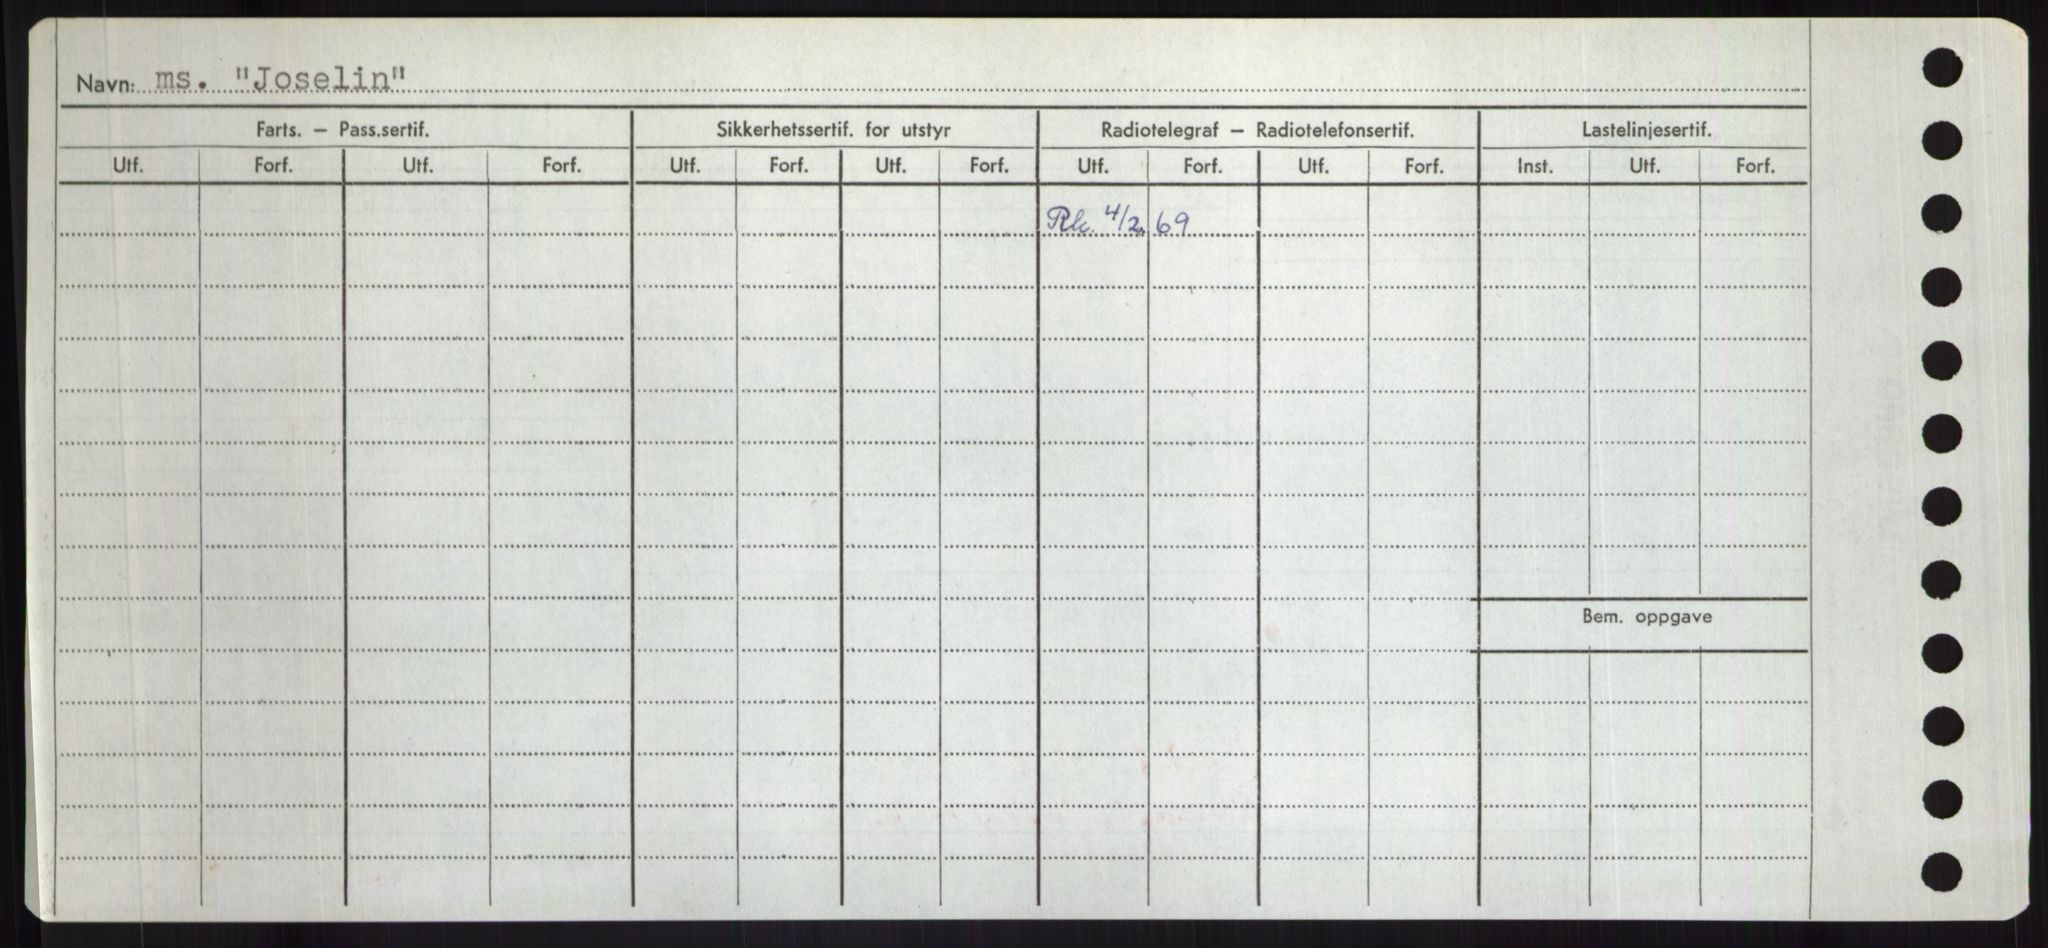 Navn: ms. "Joselin"
Farts. — Pass.sertif. Sikkerhetssertif. for utstyr Radiotelegraf — Radiotelefonsertif. Lastelinjesertif.
Utf. Forf. Utf. Forf. Utf. Forf. Utf. Forf. Utf. Forf. Utf. Forf. Inst. Utf. Forf.
Rk. 4/2.69
Bem. oppgave